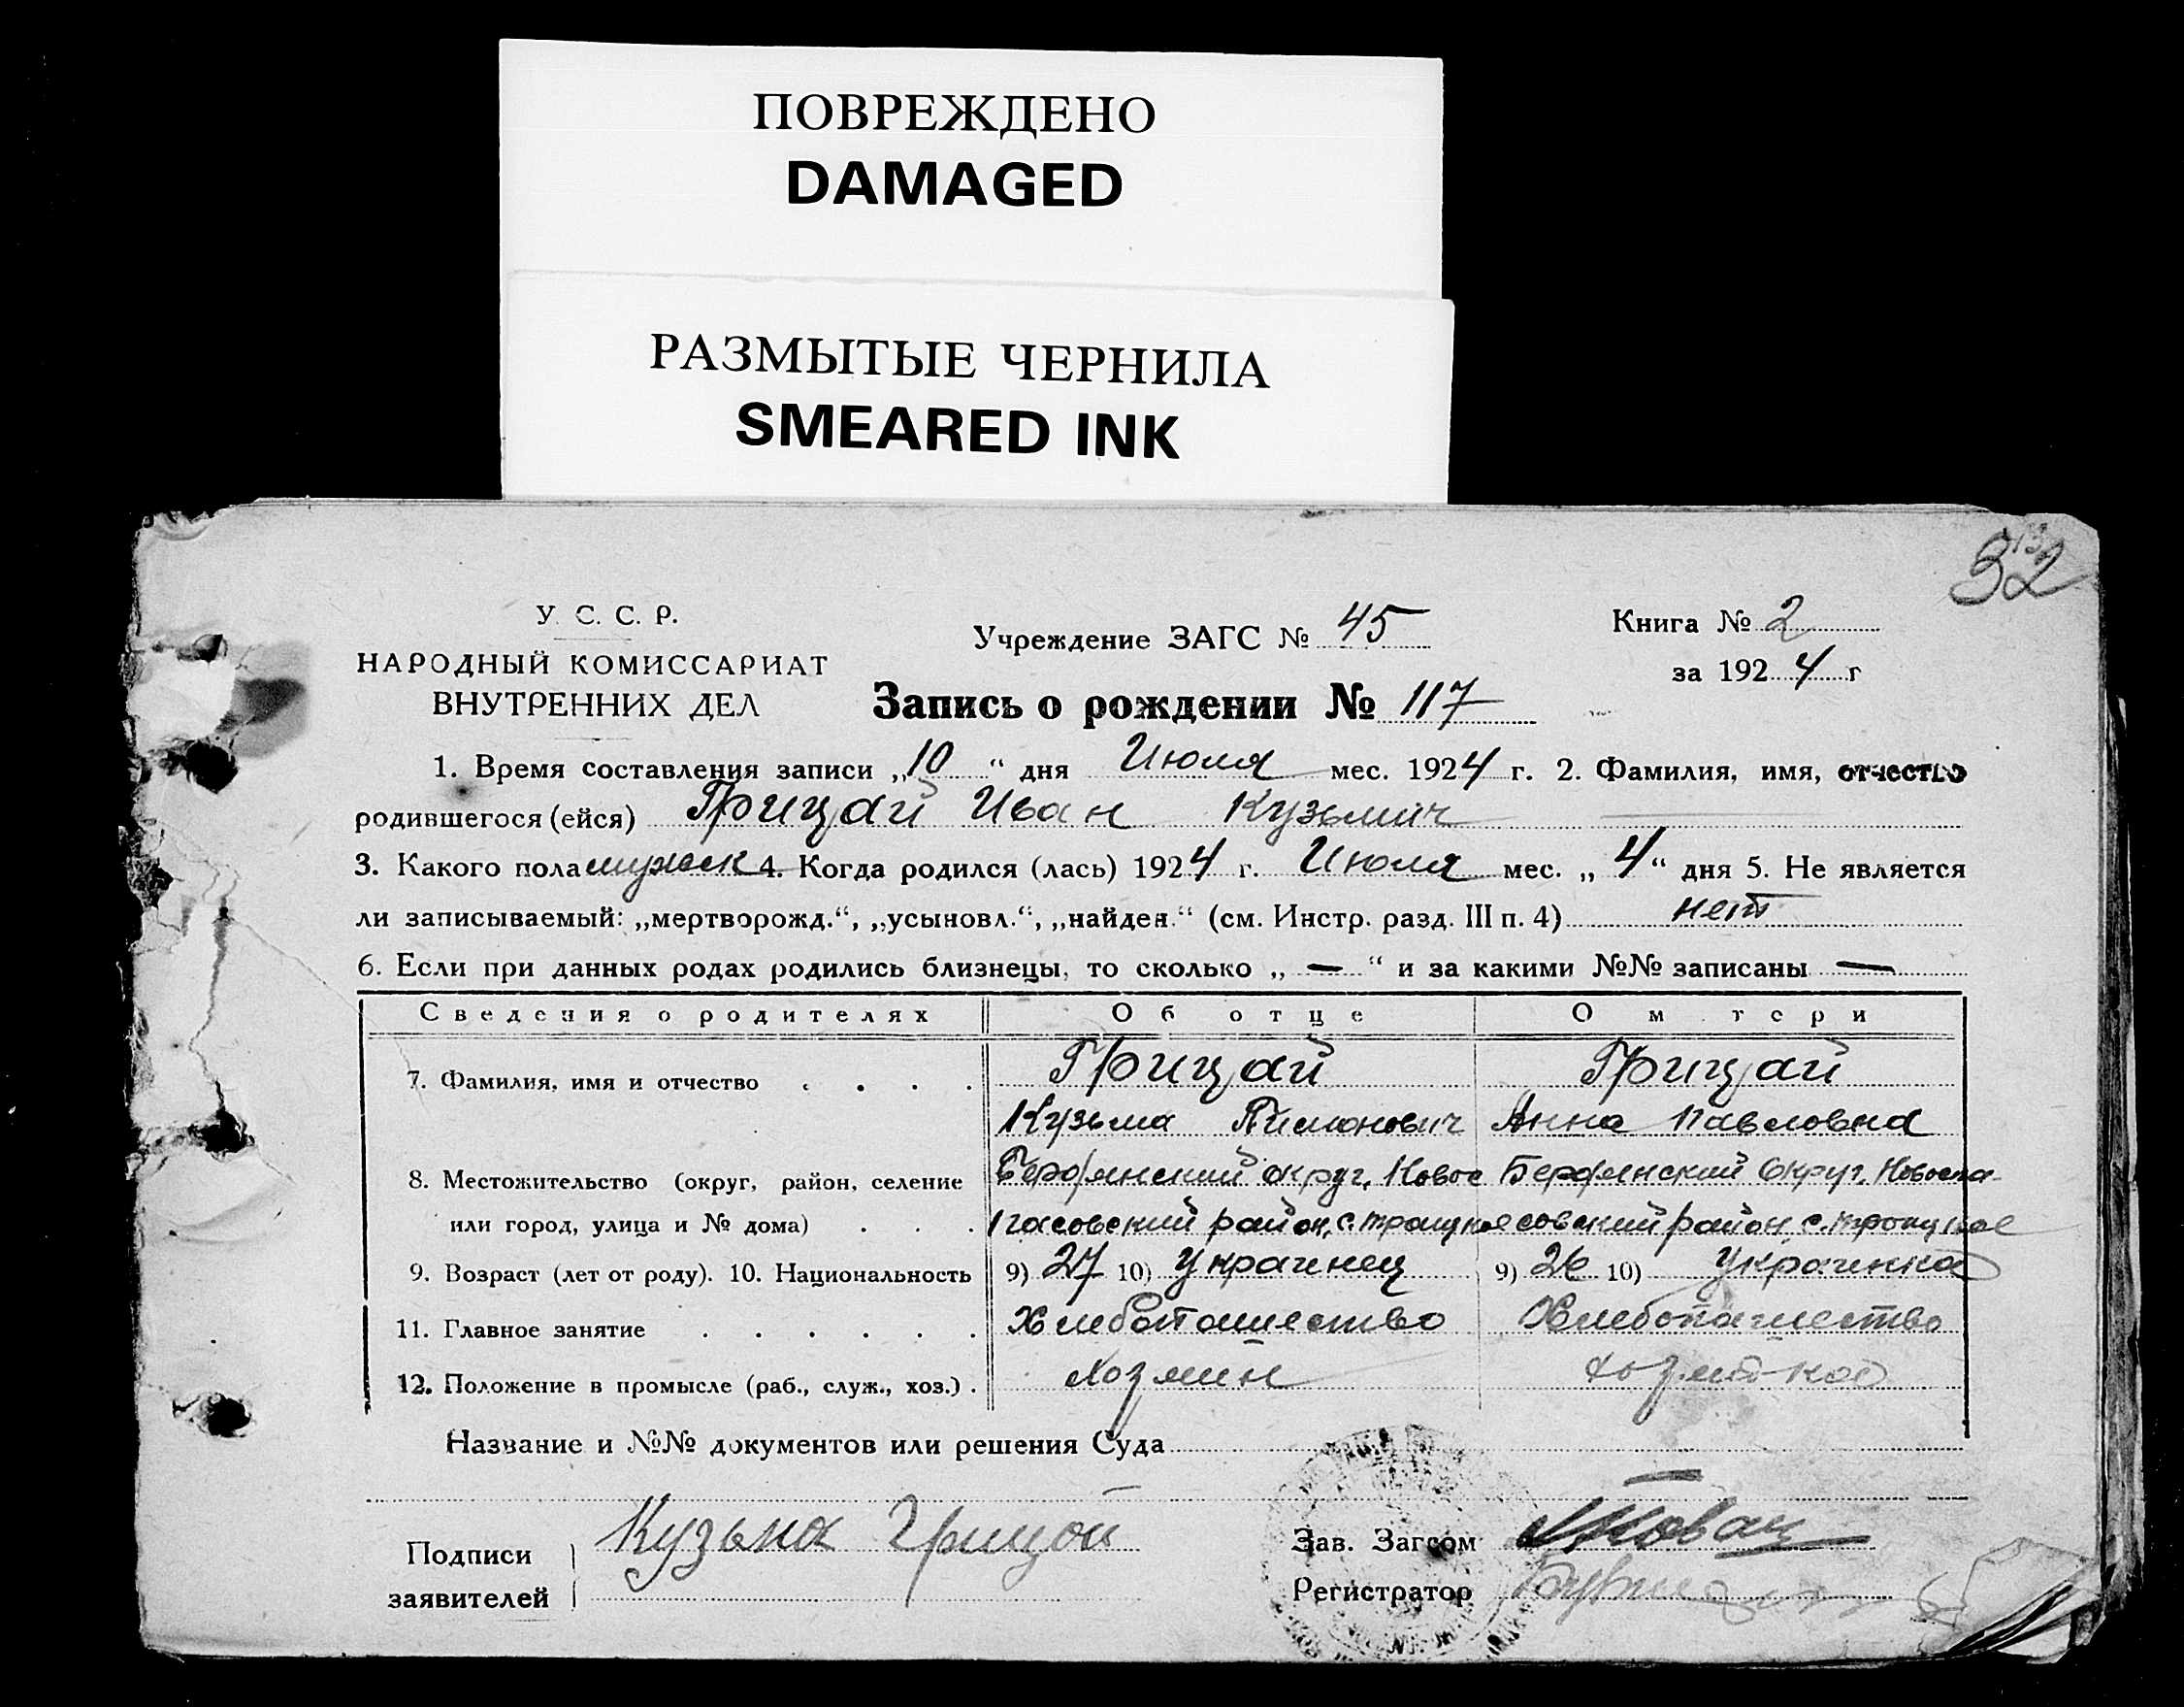 ПОВРЕЖДЕНО
DAMAGED
РАЗМЫТЫЕ ЧЕРНИЛА
SMEARED INK
32
У. С. С. Р.
НАРОДНЫЙ КОМИССАРИАТ
ВНУТРЕННИХ ДЕЛ
Учреждение ЗАГС № 45
Книга № 2
за 1924 г
Запись о рождении № 117
1. Время составления записи „10“ дня Июля мес. 1924 г. 2. Фамилия, имя, отчество
родившегося (ейся) Грицай Иван Кузьмич
3. Какого пола мужск 4. Когда родился (лась) 1924 г. Июля мес. „4“ дня 5. Не является
ли записываемый: „мертворожд.“, „усыновл.“, „найден.“ (см. Инстр. разд. III п. 4) нет
6. Если при данных родах родились близнецы, то сколько „—“ и за какими №№ записаны —
Сведения о родителях Об отце О м тери
7. Фамилия, имя и отчество . . . . Грицай Грицай
Кузьма Анна Павловна
8. Местожительство (округ, район, селение Бердянский округ, Новос Бердянский Округ, Новоспа-
или город, улица и № дома) . . . пасовский район, с. Троицкое совский район, с. Троицкое
9. Возраст (лет от роду). 10. Национальность 9) 27 10) Украинец 9) 26 10) Украинка
11. Главное занятие . . . . . . Хлебопашество Хлебопашество
12. Положение в промысле (раб., служ., хоз.) . Хозяин хозяйка
Название и №№ документов или решения Суда
Подписи
заявителей
Кузьма Грицай
Зав. Загсом
Регистратор